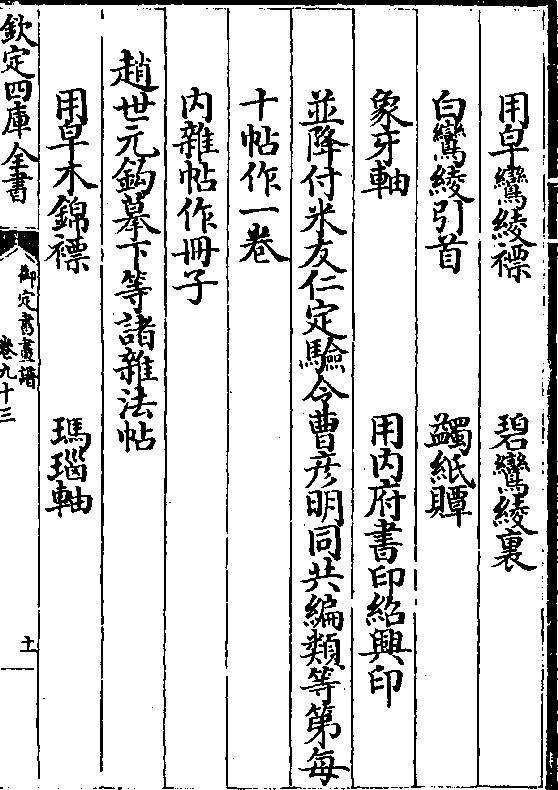 用皁鸞綾褾　碧鸞綾裏
白鸞綾引首　蠲紙贉
象牙軸　用内府書印紹興印
並降付米友仁定驗令曹彦明同共編類等第每
十帖作一卷
内雜帖作冊子
趙世元鈎摹下等諸雜法帖
用皁木錦褾　瑪瑙軸
欽定四庫全書
御定書畫譜
卷九十三
十一